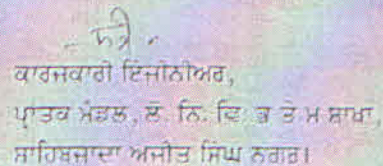 - ਸ੍ਰੀ -
ਕਾਰਜਕਾਰੀ ਇੰਜੀਨੀਅਰ,
ਪ੍ਰਾਂਤਕ ਮੰਡਲ, ਲੋ. ਨਿ. ਵਿ. ਭ ਤੇ ਮ ਸ਼ਾਖਾ,
ਸਾਹਿਬਜ਼ਾਦਾ ਅਜੀਤ ਸਿੰਘ ਨਗਰ।